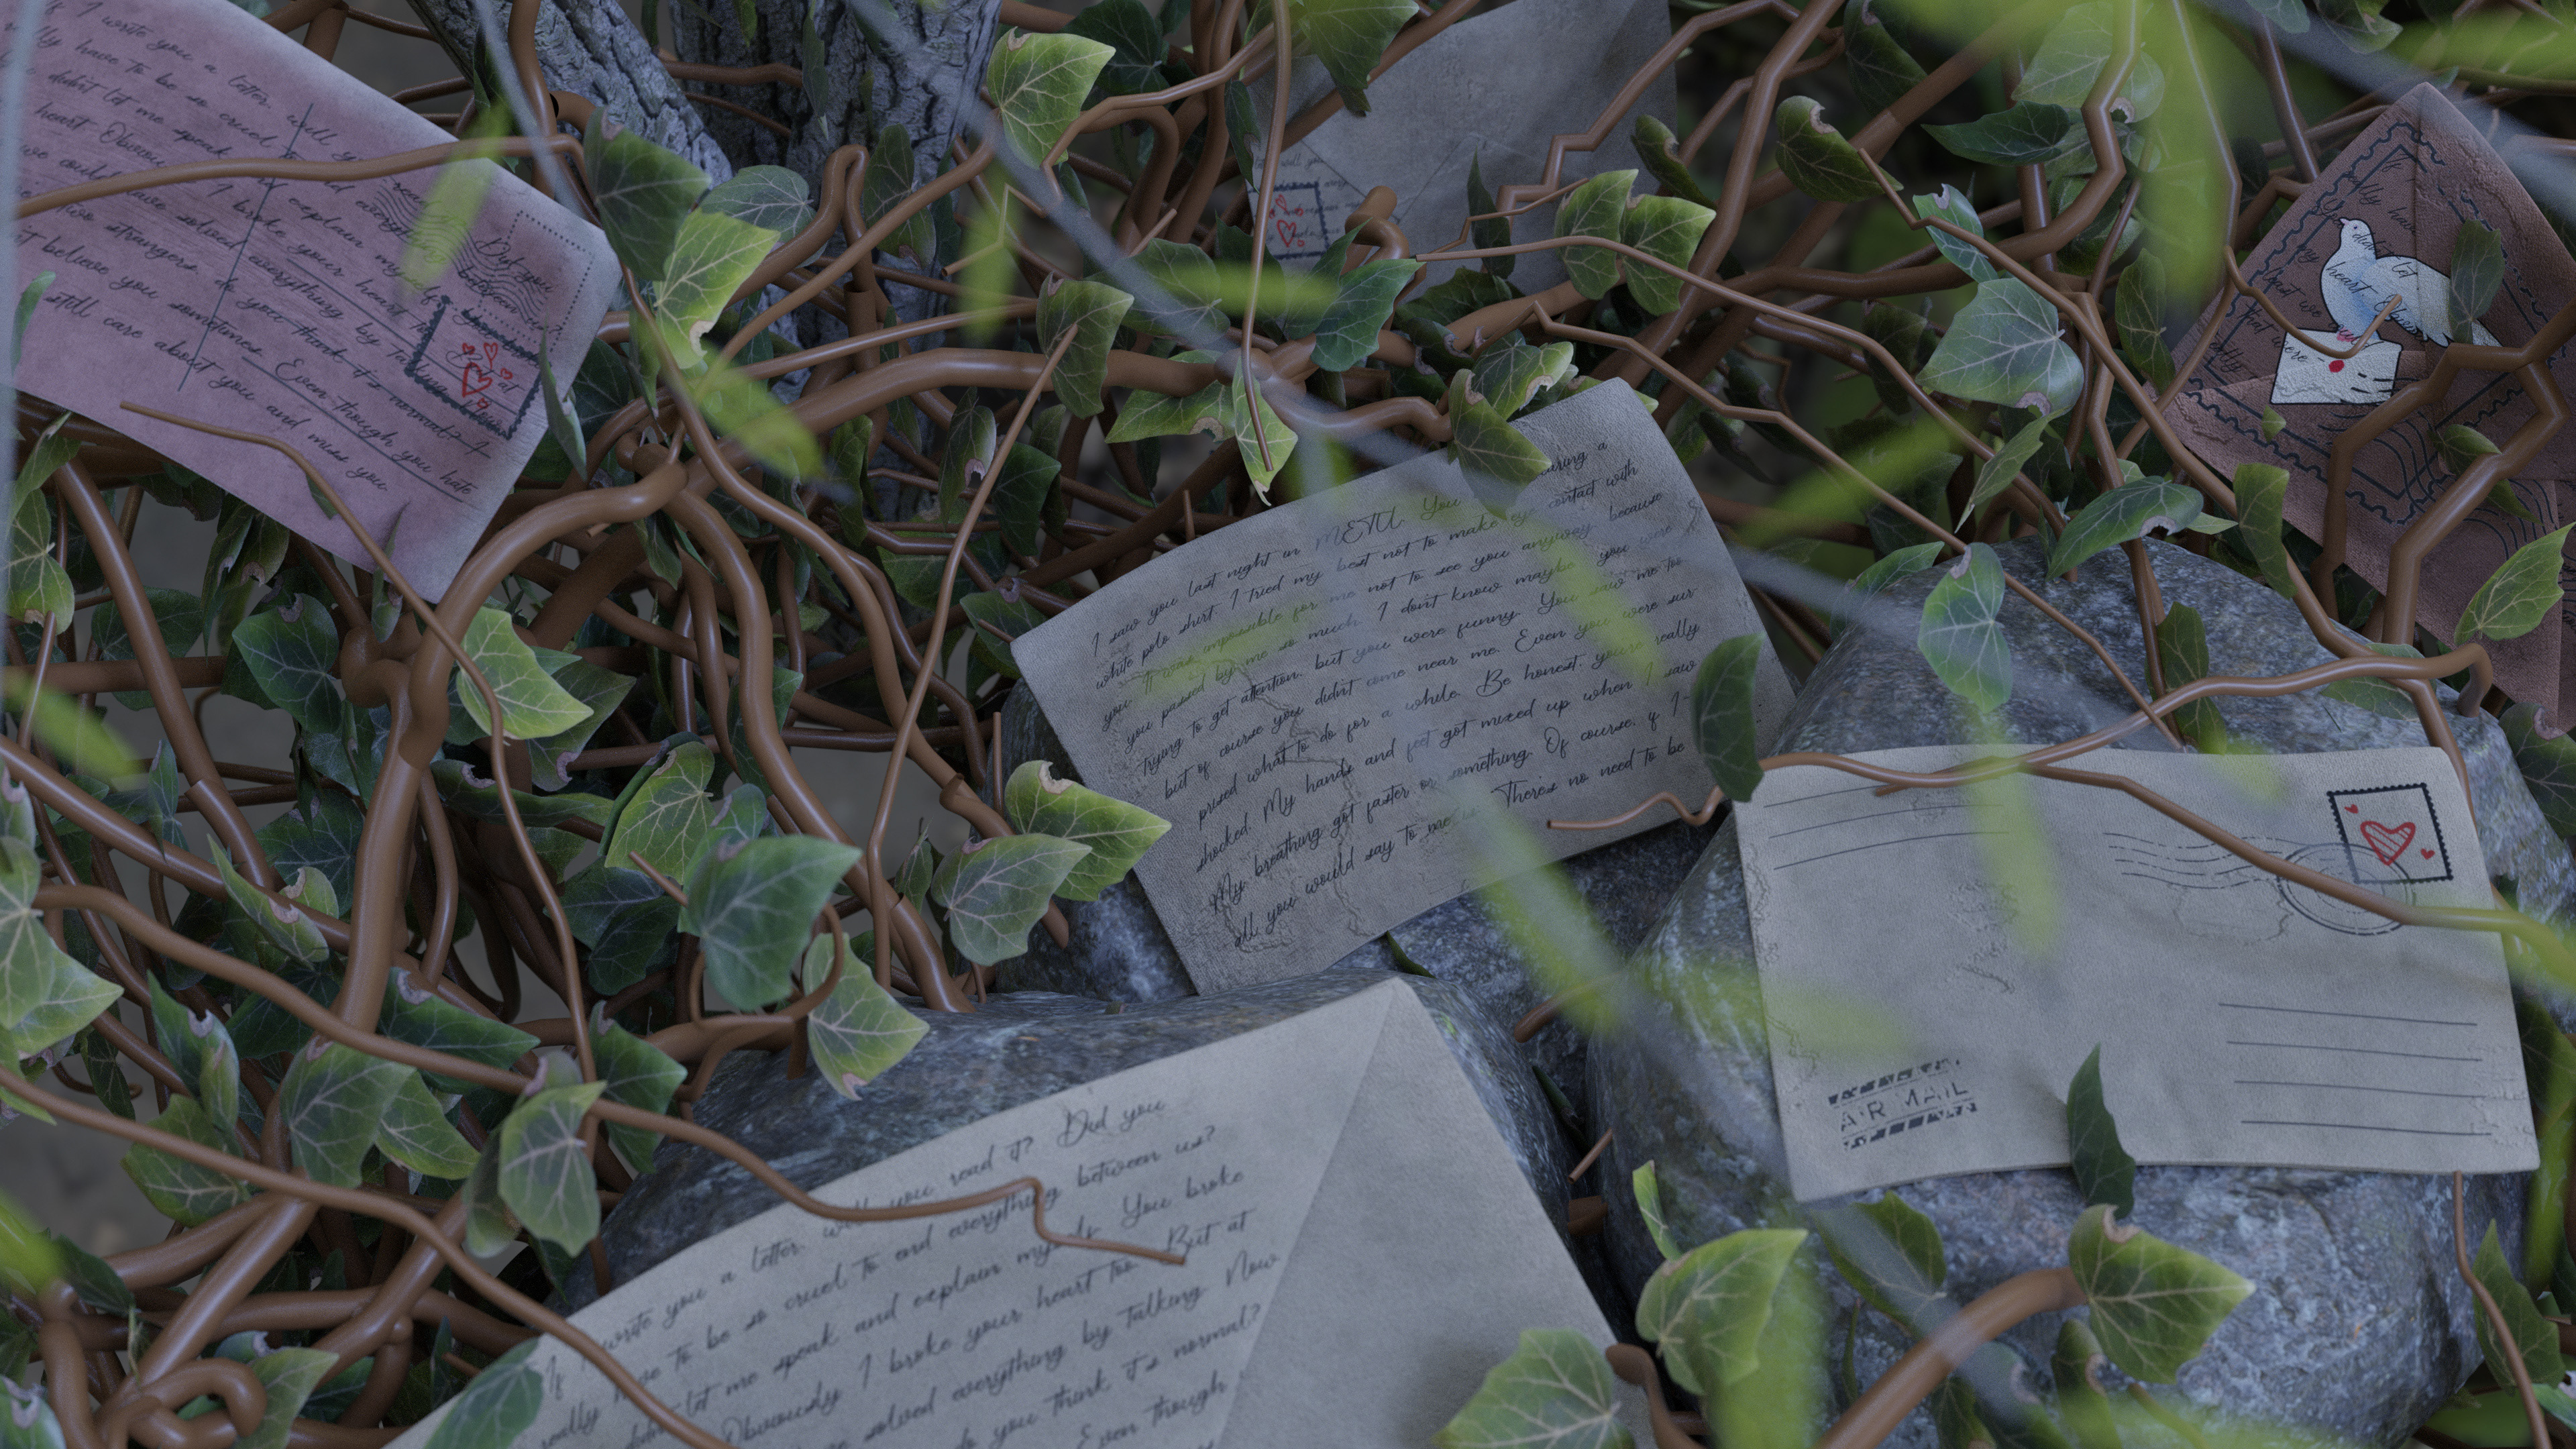 If I write you a letter, will y
lly have to be so cruel to end everything between
didn't let me speak and explain myself
heart Obviou I broke your heart to
we could have solved everything by talking
two strangers. do you think it's normal? I
t believe you sometimes. Even though you hate
still care about you and miss you.
Did you
lly hav
didn't let
heart Obviou
that we
were
I saw you last night in METU. You aring a
white polo shirt. I tried my best not to make eye contact with
you It was impossible for me not to see you anyway because
you passed by me so much. I don't know maybe you were
trying to get attention. but you were funny. You saw me too
but of course you didn't come near me. Even you were sur-
prised what to do for a while. Be honest. you're really
shocked. My hands and feet got mixed up when I saw
My breathing got faster or something. Of course. if I-
all you would say to me is There's no need to be
AIR MAIL
If I write you a letter. will you read it? Did you
really have to be so cruel to end everything between us?
didn't let me speak and explain myself. You broke
Obviously I broke your heart too. But at
solved everything by talking. Now
do you think it's normal?
Even though